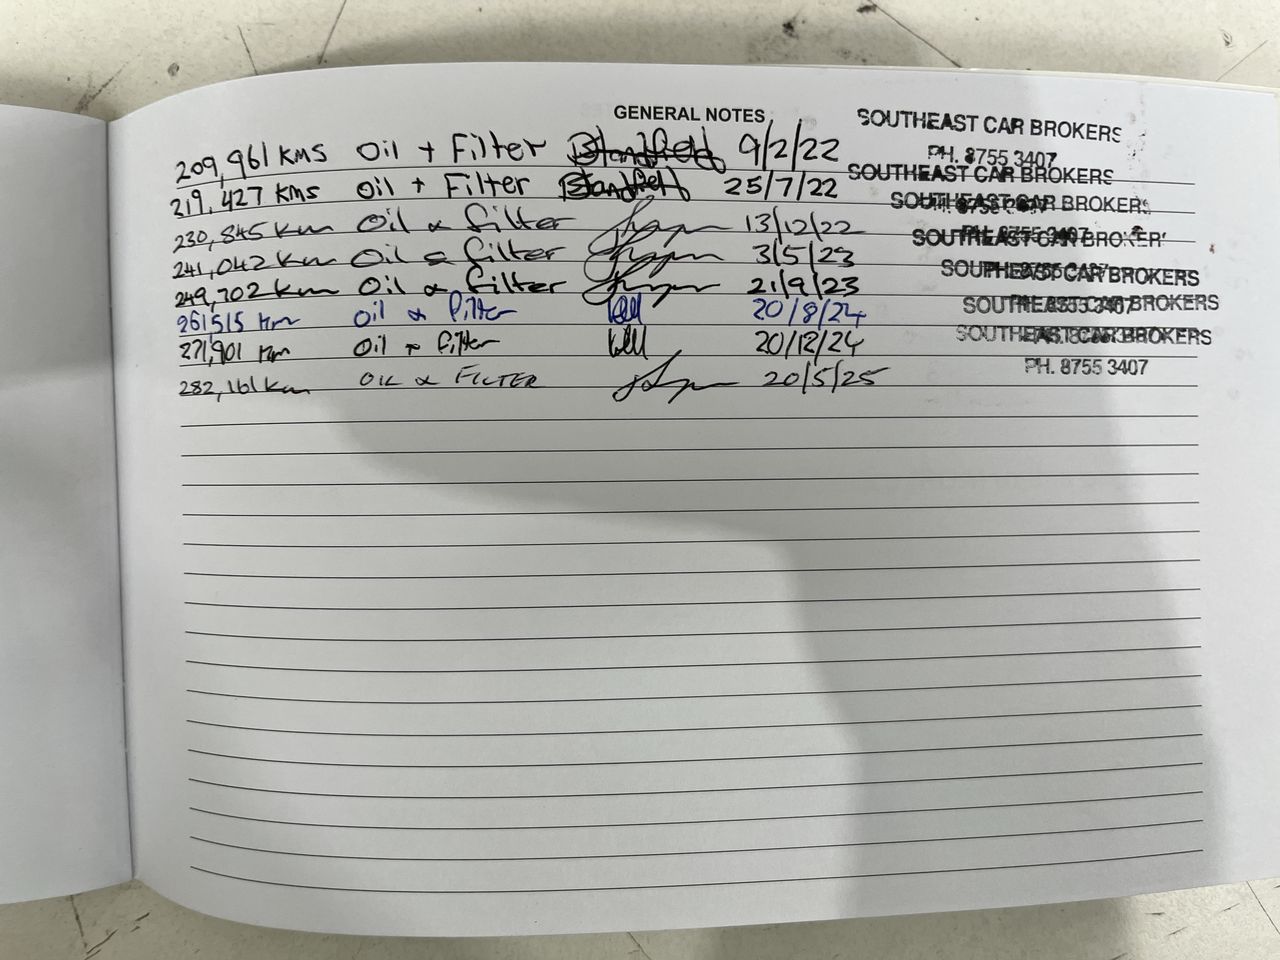 GENERAL NOTES
SOUTHEAST CAR BROKERS
PH. 8755 3407
209,961 KMS Oil + Filter 9/2/22
SOUTHEAST CAR BROKERS
219,427 KMS Oil + Filter 25/7/22
SOUTHEAST CAR BROKERS
230,845 Km Oil & filter 13/12/22
SOUTHEAST CAR BROKERS
241,042 Km Oil & filter 3/5/23
SOUTHEAST CAR BROKERS
249,702 Km Oil & filter 21/9/23
SOUTHEAST CAR BROKERS
261515 Km Oil & filter 20/8/24
SOUTHEAST CAR BROKERS
271,901 Km Oil & filter 20/12/24
PH. 8755 3407
282,161 Km OIL & FILTER 20/5/25